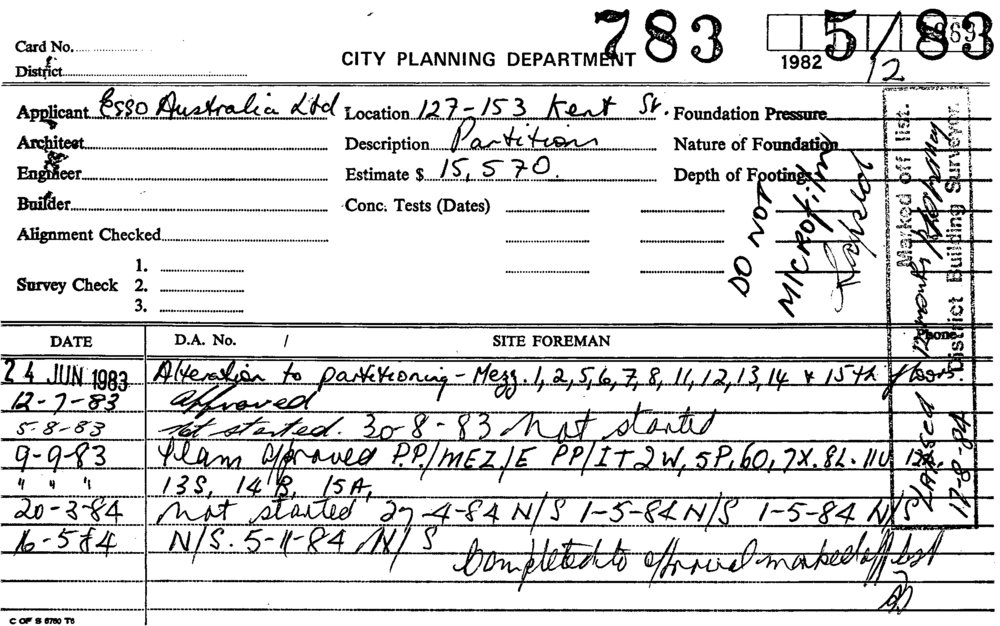 783 5/83
Card No.
CITY PLANNING DEPARTMENT
1982 12
District
Applicant Esso Australia Ltd Location 127-153 Kent St. Foundation Pressure
Architect Description Partitions Nature of Foundation
Engineer Estimate $ 15,570. Depth of Footings
Builder Conc. Tests (Dates)
Alignment Checked
DO NOT
MICROFILM
Survey Check 1.
2.
3.
Marked off list.
District Building Surveyor.
LAPSED
17-8-84
DATE D.A. No. / SITE FOREMAN Phone
24 JUN 1983 Alteration to partitioning - Mezz. 1, 2, 5, 6, 7, 8, 11, 12, 13, 14 & 15th floors.
12-7-83 Approved
5-8-83 Not started. 30-8-83 Not started
9-9-83 Plans Approved P.P./MEZ./E PP/IT 2W, 5P, 6O, 7X. 8L. 11U
" " " 13S, 14B, 15A,
20-3-84 Not started 27-4-84 N/S 1-5-84 N/S 1-5-84 N/S
16-5-84 N/S. 5-11-84 N/S
Completed to approval marked off list
C OF S 6760 T6